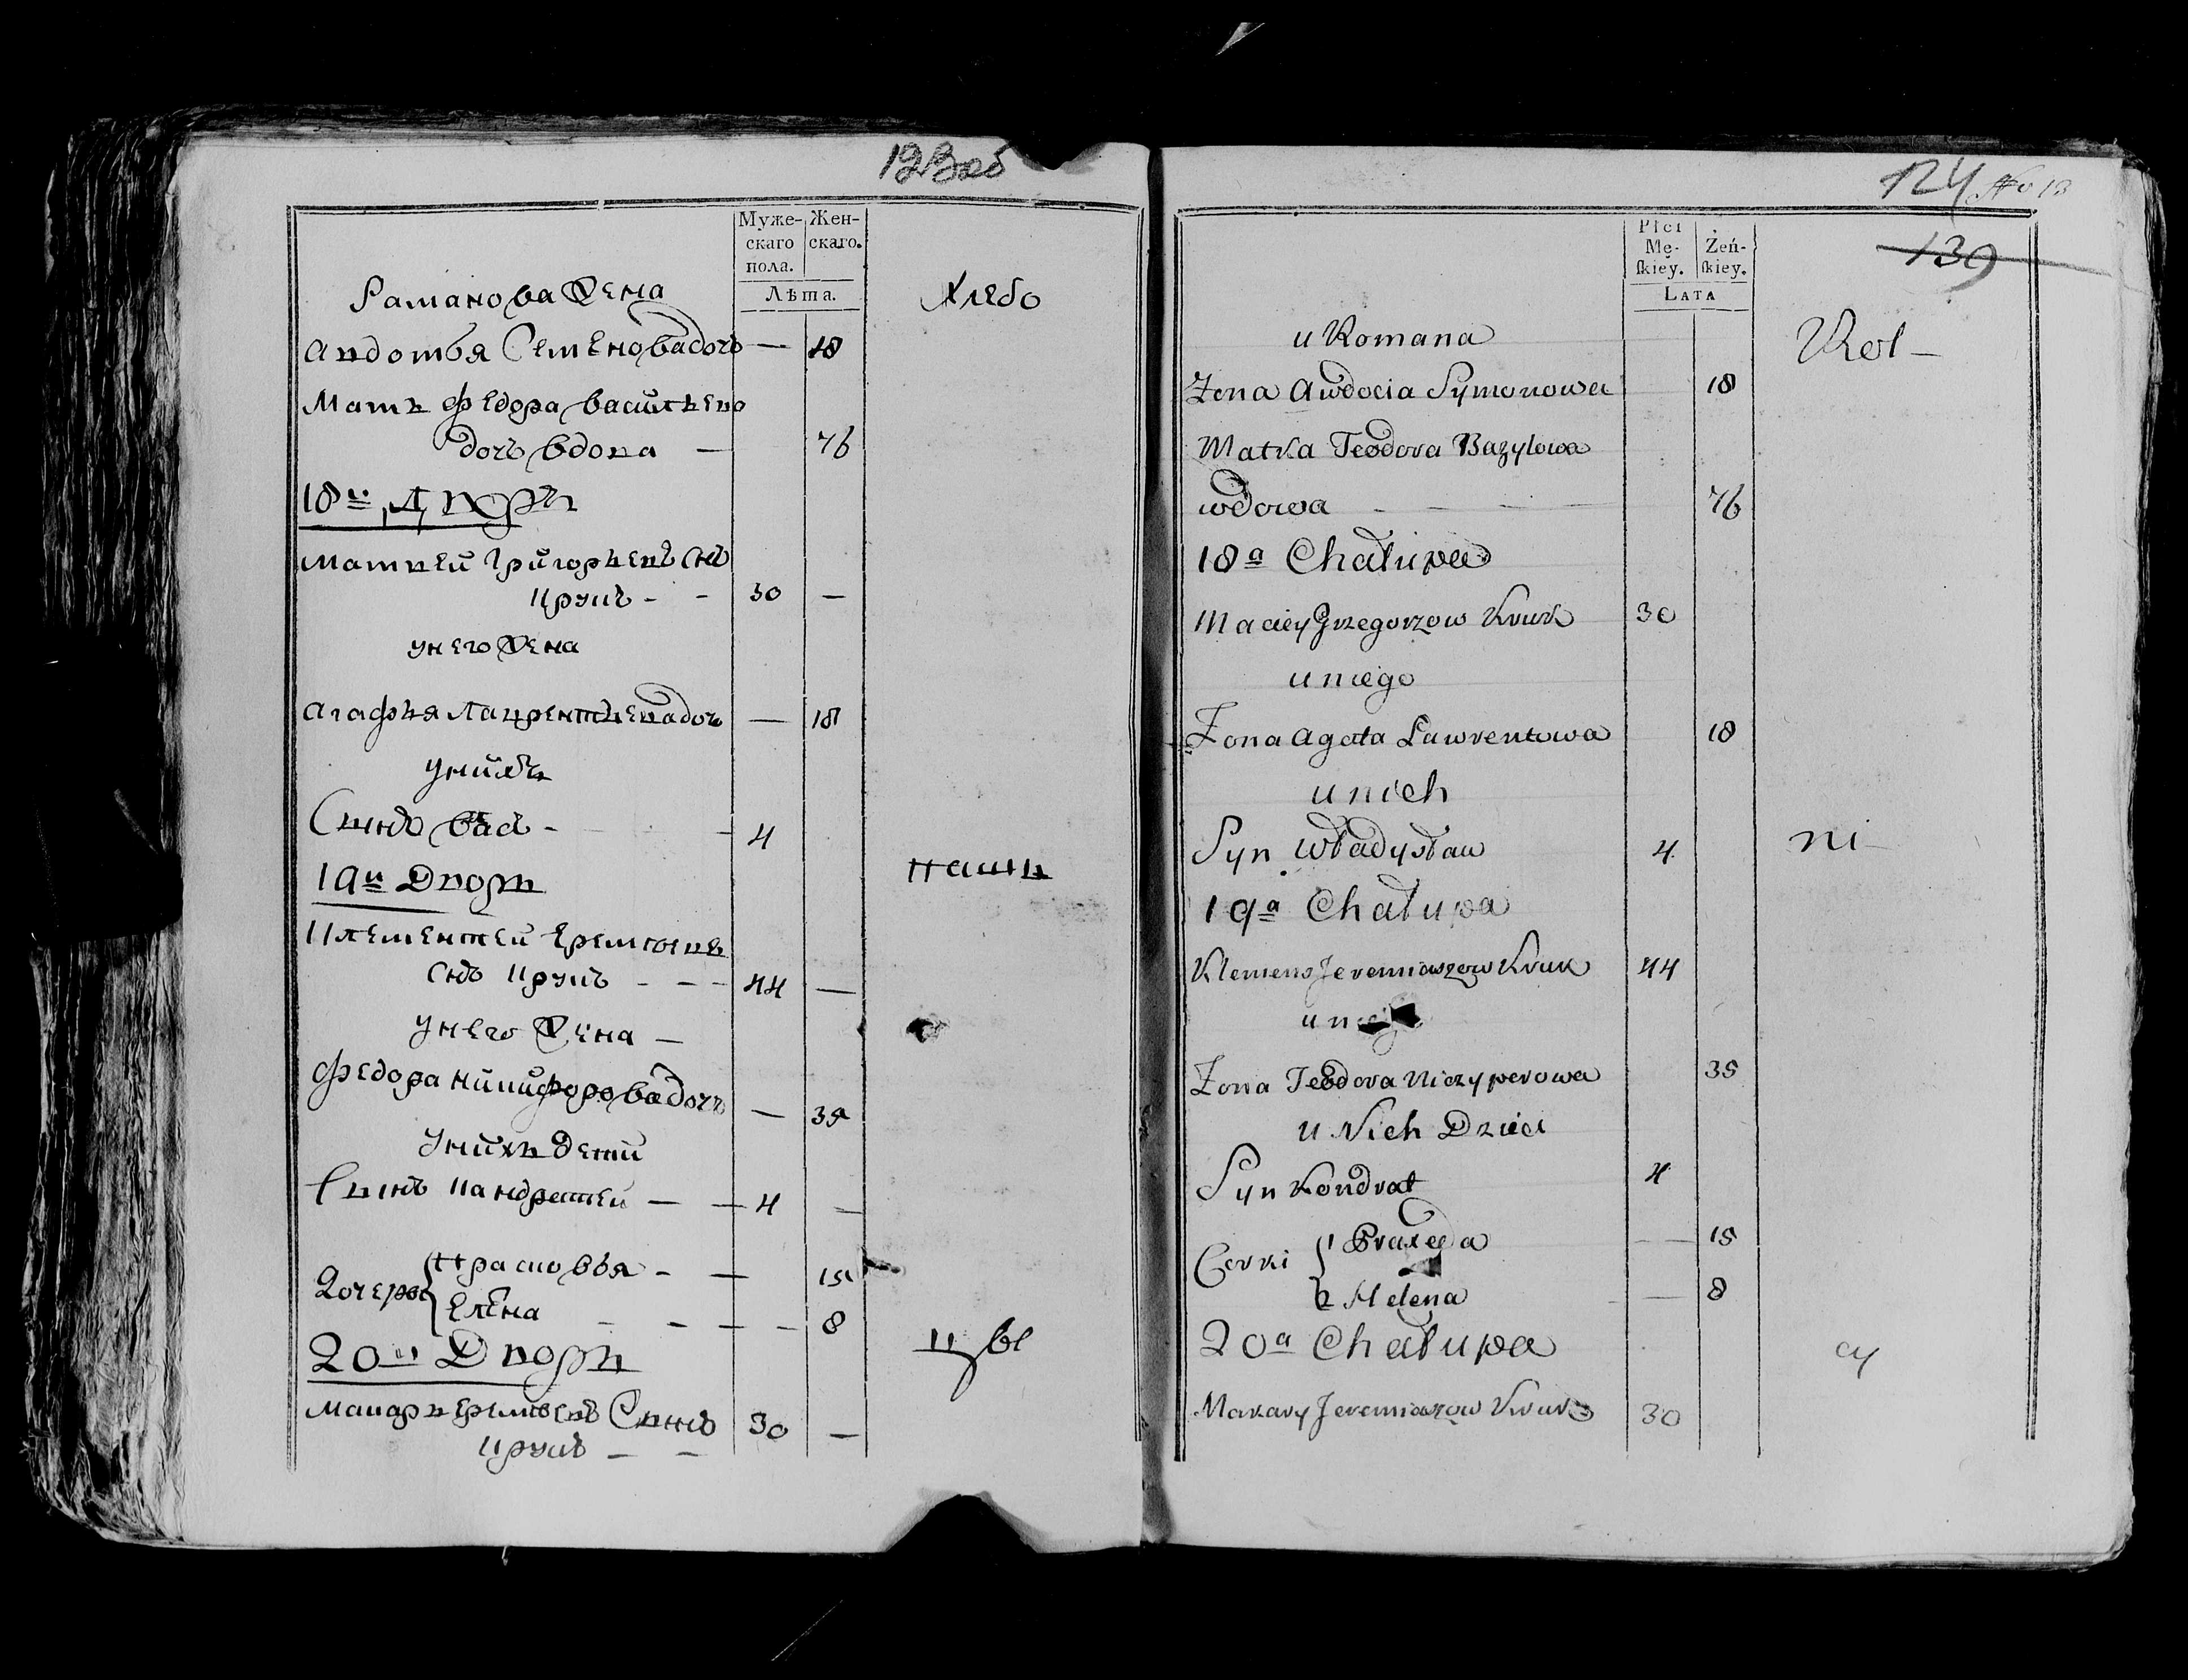 123 об
Муже-
скаго
пола.
Жен-
скаго.
Лѣта.
Раманова Жена
Хлебо
Авдотья Семенова дочь — 18
Мать Федора Васильева
дочь вдова — 76
18й Дворъ
Матвей Григорьевъ снъ
Крукъ - - 30 —
у него Жена
Агафья Лаврентьева дочь — 18
у нихъ
Сынъ Вас - - 4
19й Дворъ
паши
Клементей Еремѣевъ
снъ Крукъ - - - 44 —
у него Жена —
Федора Никифорова дочь — 35
у нихъ дети
Сынъ Кандратей — — 4 —
Дочери Прасковья - — 15
Елена - - — - 8
20й Дворъ
цы
Макаръ Еремѣевъ Сынъ 30 —
Крукъ — —
124 No 13
139
Płci
Mę-
ſkiey.
Żeń-
ſkiey.
Lata
u Romana
Rol-
Zona Awdocia Symonowa 18
Matka Teodora Bazylowa
wdowa - - — 76
18a Chałupa
Maciey Grzegorzow Kruk 30
u niego
Zona Agata Lawrentowa 18
u nich
Syn Władysław 4
ni-
19a Chałupa
Klemens Jeremiaszow Kruk 44
u niego
Zona Teodora Niczyperowa 35
u Nich Dzieci
Syn Kondrat 4
Corki 1 Praxeda — 15
2 Helena - — 8
20a Chałupa
cy
Makary Jeremiaszow Kruk 30